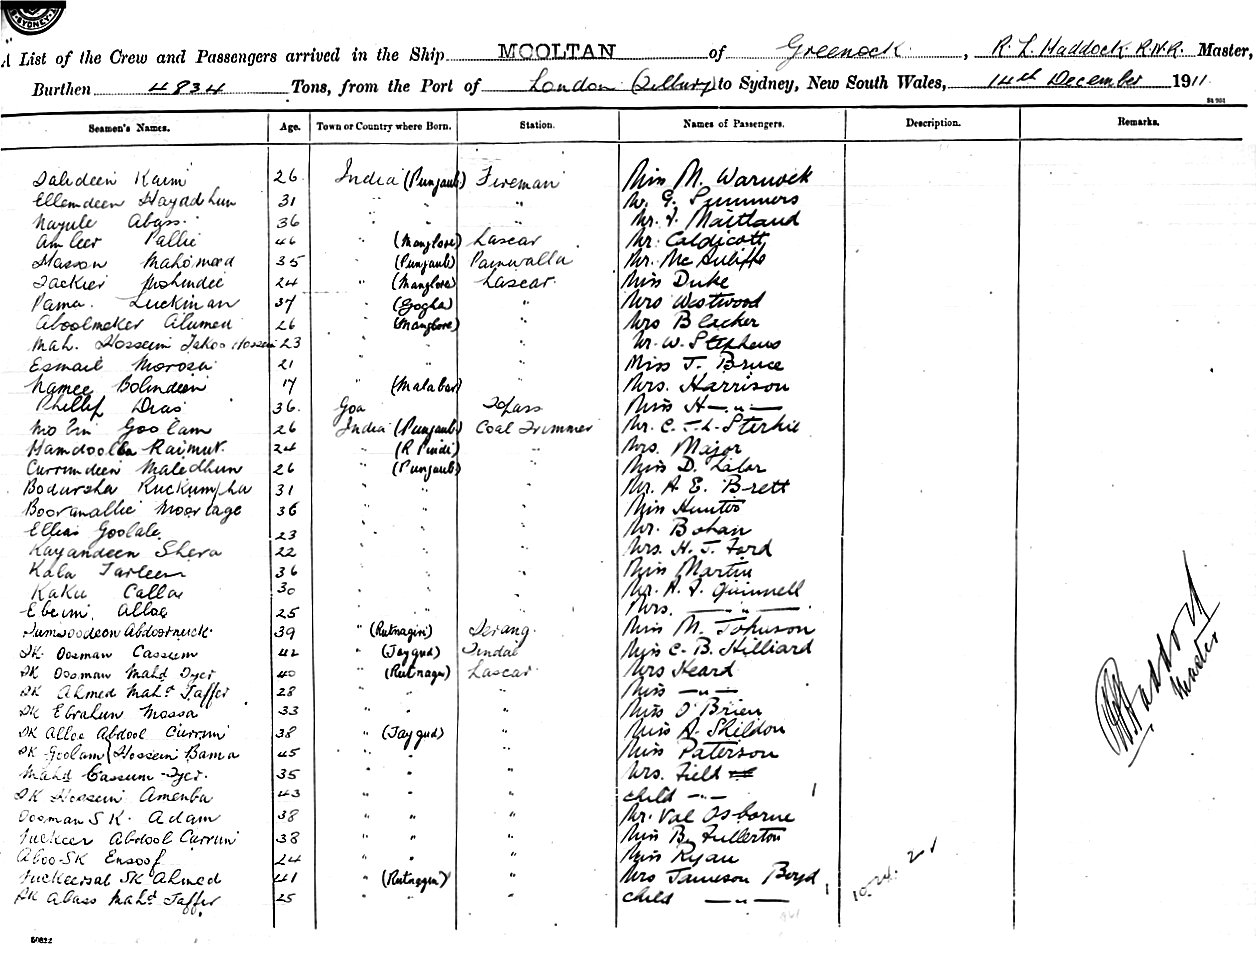 SYDNEY
A List of the Crew and Passengers arrived in the Ship MOOLTAN of Greenock, R. L. Haddock R.N.R. Master,
Burthen 4834 Tons, from the Port of London (Tilbury) to Sydney, New South Wales, 14th December 1911
St 901
Seamen's Names. Age. Town or Country where Born. Station. Names of Passengers. Description. Remarks.
Karim 26 India (Punjaub) Fireman Miss M. Warnock
Ellemdeen Hayadhun 31 " " " Mr G. Summers
Abass 36 " " " Mr. J. Maitland
Ameer Pallie 46 " (Manglore) Lascar Mr. Caldicott
Hasson Mahomed 35 " (Punjaub) Paniwalla Mr. McAuliffe
24 " (Manglore) Lascar Miss Duke
Pama Luckman 37 " (Gogha) " Mrs Westwood
Aboolmeker Alumed 26 " (Manglore) " Mrs Blacker
Mah. Hossein Hossein 23 " " " Mr. W. Stephens
Esmail Morosa 21 " " " Miss J. Bruce
Namee Bolindeen 17 " (Malabar) " Mrs. Harrison
Phillip Dias 36 Goa Topass Miss H — " —
Goolam 26 India (Punjaub) Coal Trimmer Mr. C. L. Sterkie
Hamdoolla Raimut 24 " (R Pindi) " Mrs. Major
Currimdeen Maledhun 26 " (Punjaub) " Miss D.
Bodursha Ruckumsha 31 " " " Mr. A. E. Brett
Booramallie Moortage 36 " " " Miss Hunter
Ellias Goolale 23 " " " Mr. Bohan
Kayandeen Shera 22 " " " Mrs. H. J. Ford
Kala Tarleem 36 " " " Miss Martin
Kaku Calla 30 " " " Mr. A. J. Gunnell
Ebeim Allae 25 " " " Mrs. — " —
Jumsoodeen Abdoornuck 39 " (Rutnagiri) Serang Miss M. Johnson
SK. Oosman Cassum 42 " (Jaygud) Tindal Miss C. B. Hilliard
SK Oosman Mahd Dyer 40 " (Rutnagiri) Lascar Mrs Heard
SK Ahmed Mahd Jaffer 28 " " " Miss — " —
SK Ebrahim Mossa 33 " " " Miss O'Brien
SK Alloe Abdool Currim 38 " (Jaygud) " Miss A. Shildon
SK Goolam Hossein Bama 45 " " " Miss Paterson
Mahd Cassum Dyer 35 " " " Mrs. Field
SK Hossein Amenba 43 " " " child — " — 1
Oosman SK. Adam 38 " " " Mr. Val Osborne
Fuckeer Abdool Currim 38 " " " Miss B. Fullerton
Aboo SK Ensoof 24 " " " Miss Ryan
SK Ahmed 41 " (Rutnagiri) " Mrs Jameson Boyd
SK Abass Mahd Jaffer 25 " " " child — " — 1
Haddock
Master
50822